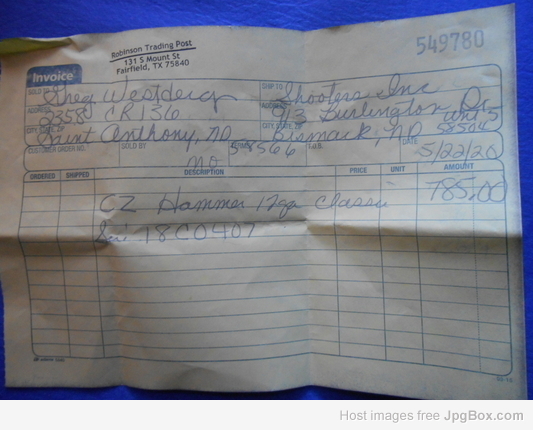 Robinson Trading Post
131 S Mount St
Fairfield, TX 75840
549780
Invoice
SOLD TO
Greg Westdercy
SHIP TO
Shooters Inc
ADDRESS
2358 CR 136
ADDRESS
913 Burlington Dr
Unit 5
CITY, STATE, ZIP
Saint Anthony, ND
58566
CITY, STATE, ZIP
Bismarck, ND 58504
CUSTOMER ORDER NO.
SOLD BY
TERMS
F.O.B.
DATE
5/22/20
ORDERED SHIPPED DESCRIPTION PRICE UNIT AMOUNT
CZ Hammer 12ga Classic 785.00
18C0407
Host images free JpgBox.com